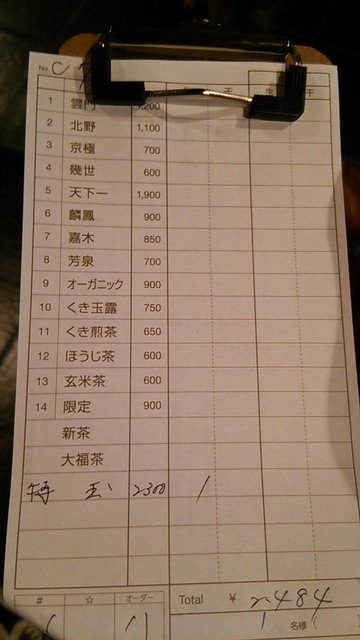 No. C
1 雲門 1,200
2 北野 1,100
3 京極 700
4 幾世 600
5 天下一 1,900
6 麟鳳 900
7 嘉木 850
8 芳泉 700
9 オーガニック 900
10 くき玉露 750
11 くき煎茶 650
12 ほうじ茶 600
13 玄米茶 600
14 限定 900
新茶
大福茶
特 玉 2300 1
# ☆ オーダー
Total ¥ 2484
1 名様